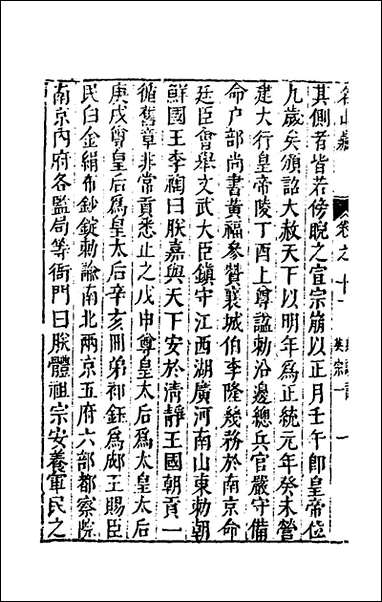 名山藏 卷之十 英宗一 一
其側者皆若傍睨之宣宗崩以正月壬午即皇帝位
九歲矣頒詔大赦天下以明年為正統元年癸未營
建大行皇帝陵丁酉上尊謚勑沿邊總兵官嚴守備
命户部尚書黃福參贊襄城伯李隆幾務於南京命
廷臣會舉文武大臣鎮守江西湖廣河南山東勑朝
鮮國王李祹曰朕嘉與天下安於清靜王國朝貢一
循舊章非常貢悉止之戊申尊皇太后為太皇太后
庚戌尊皇后為皇太后辛亥冊弟祁鈺為郕王賜臣
民白金絹布鈔錠勑諭南北兩京五府六部都察院
南京內府各監局等衙門曰朕體祖宗安養軍民之